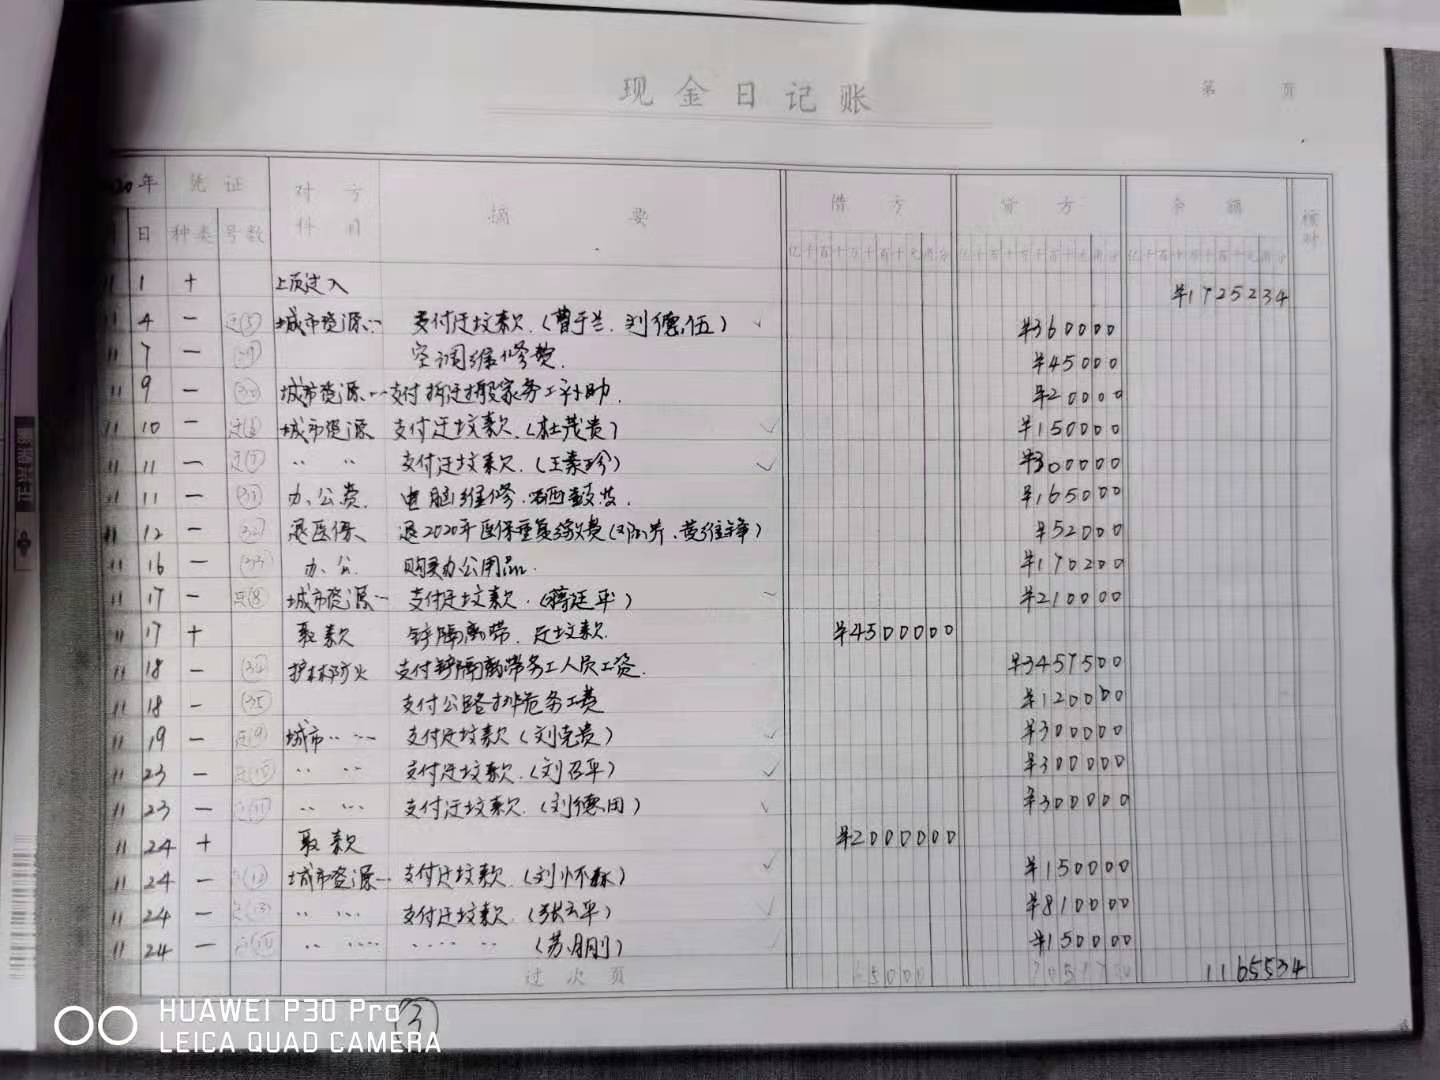 现金日记账
第 页
2020年 凭证 对方科目 摘要 借方 贷方 余额 核对
月 日 种类 号数 亿千百十万千百十元角分 亿千百十万千百十元角分 亿千百十万千百十元角分
11 1 + 上页过入 ¥1725234
11 4 - 迁⑤ 城市资源… 支付迁坟款.(曹于兰.刘德伍) ✓ ¥360000
11 7 - 空调维修费. ¥45000
11 9 - 城市资源… 支付拆迁搬家务工补助. ¥20000
11 10 - 城市资源 支付迁坟款.(杜茂贵) ✓ ¥150000
11 11 - 迁⑦ 〃 〃 支付迁坟款.(王素珍) ✓ ¥300000
11 11 - 办公费. 电脑维修.硒鼓 ¥165000
11 12 - 退医保 退2020年医保重复缴费 ¥52000
11 16 - 办公 购买办公用品. ¥170200
11 17 - 迁⑧ 城市资源… 支付迁坟款.(蒋廷平) ✓ ¥210000
11 17 + 取款 铲隔离带.迁坟款. ¥4500000
11 18 - 护林防火 支付铲隔离带务工人员工资. ¥3457500
11 18 - (35) 支付公路排危务工费 ¥120000
11 19 - 迁⑨ 城市…… 支付迁坟款(刘克贵) ✓ ¥300000
11 23 - 迁⑩ 〃 〃 支付迁坟款.(刘召平) ✓ ¥300000
11 23 - 〃 〃 支付迁坟款.(刘德田) ✓ ¥300000
11 24 + 取款 ¥2000000
11 24 - 城市资源… 支付迁坟款.(刘怀森) ✓ ¥150000
11 24 - 〃 〃 支付迁坟款.(张云平) ✓ ¥810000
11 24 - 〃 〃 〃 〃 (苏月刚) ¥150000
过次页 1165534
③
HUAWEI P30 Pro
LEICA QUAD CAMERA